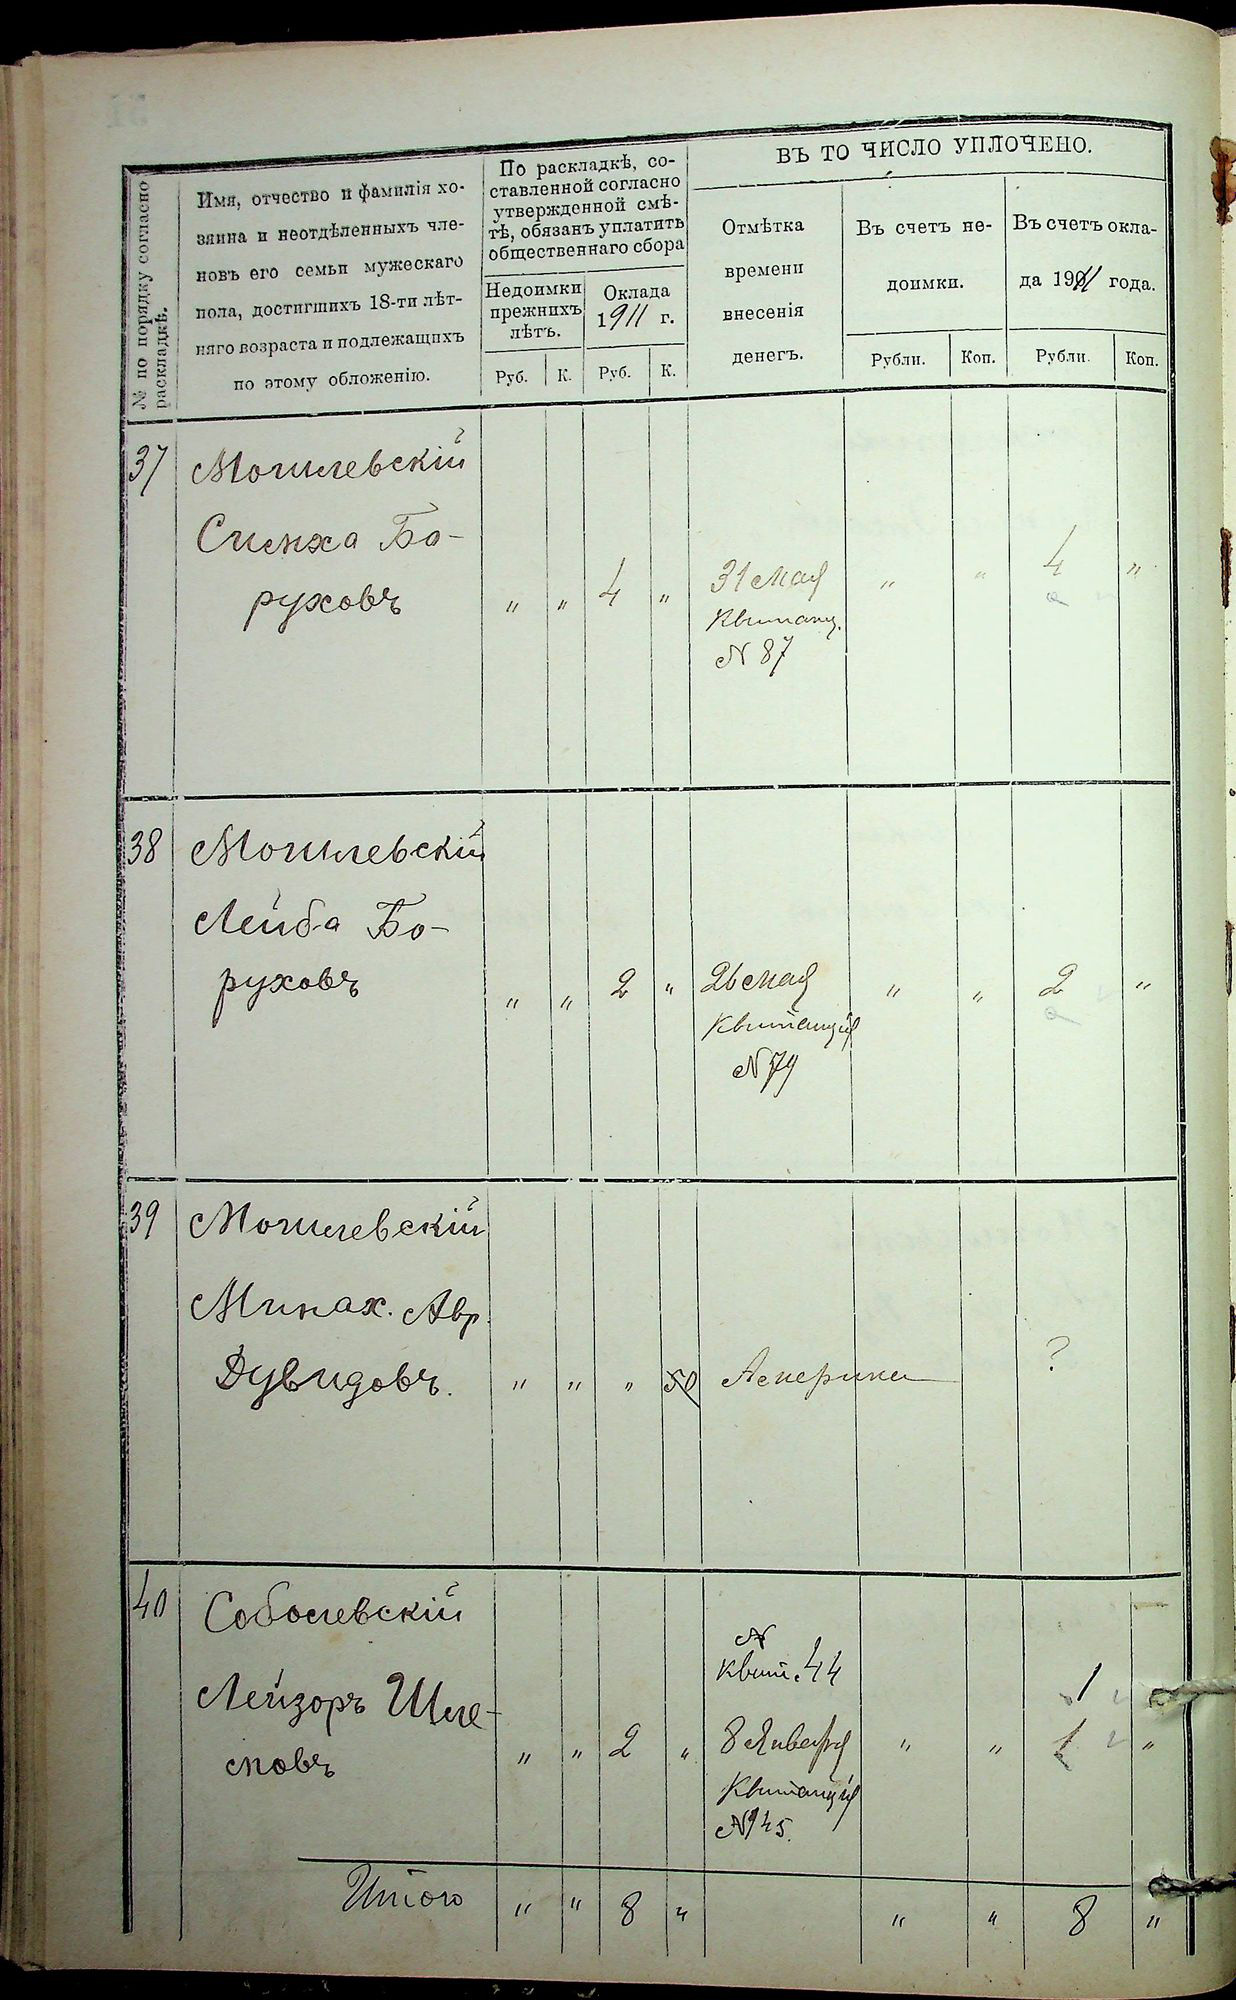 № по порядку согласно
раскладкѣ.
Имя, отчество и фамилія хо-
зяина и неотдѣленныхъ чле-
новъ его семьи мужескаго
пола, достигшихъ 18-ти лѣт-
няго возраста и подлежащихъ
по этому обложенію.
По раскладкѣ, со-
ставленной согласно
утвержденной смѣ-
тѣ, обязанъ уплатить
общественнаго сбора
Недоимки
прежнихъ
лѣтъ.
Оклада
1911 г.
Руб. К. Руб. К.
ВЪ ТО ЧИСЛО УПЛОЧЕНО.
Отмѣтка
времени
внесенія
денегъ.
Въ счетъ не-
доимки.
Въ счетъ окла-
да 1911 года.
Рубли. Коп. Рубли. Коп.
37 Могилевскій
Симха Бо-
руховъ " " 4 " 31 Мая " " 4 "
Квитанц.
N 87
38 Могилевскій
Лейба Бо-
руховъ " " 2 " 26 Мая " " 2 "
Квитанція
N 79
39 Могилевскій
Минах. Авр.
Дувидовъ. " " " 50 Америка ?
40 Соболевскій
N
Квит. 44 1
Лейзоръ Шле-
мовъ " " 2 " 8 Января " " 1 "
Квитанція
N 145.
Итого " " 8 " " " 8 "